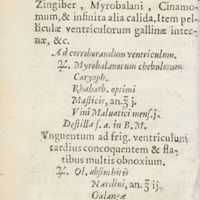 Zingiber, Myrobalani, Cinamo-
mum, & infinita alia calida. Item pel-
liculæ ventriculorum gallinæ inter-
næ, &c.
Ad corroborandum ventriculum.
♃. Myrobalanorum chebulorum
Caryoph.
Rhabarb. optimi
Masticis, an. ʒ j.
Vini Maluatici mens. j.
Destilla s. a. in B. M.
Vnguentum ad frig. ventriculum
tardius concoquentem & fla-
tibus multis obnoxium.
♃. Ol. absinthitis
Nardini, an. ʒ ij.
Galangæ